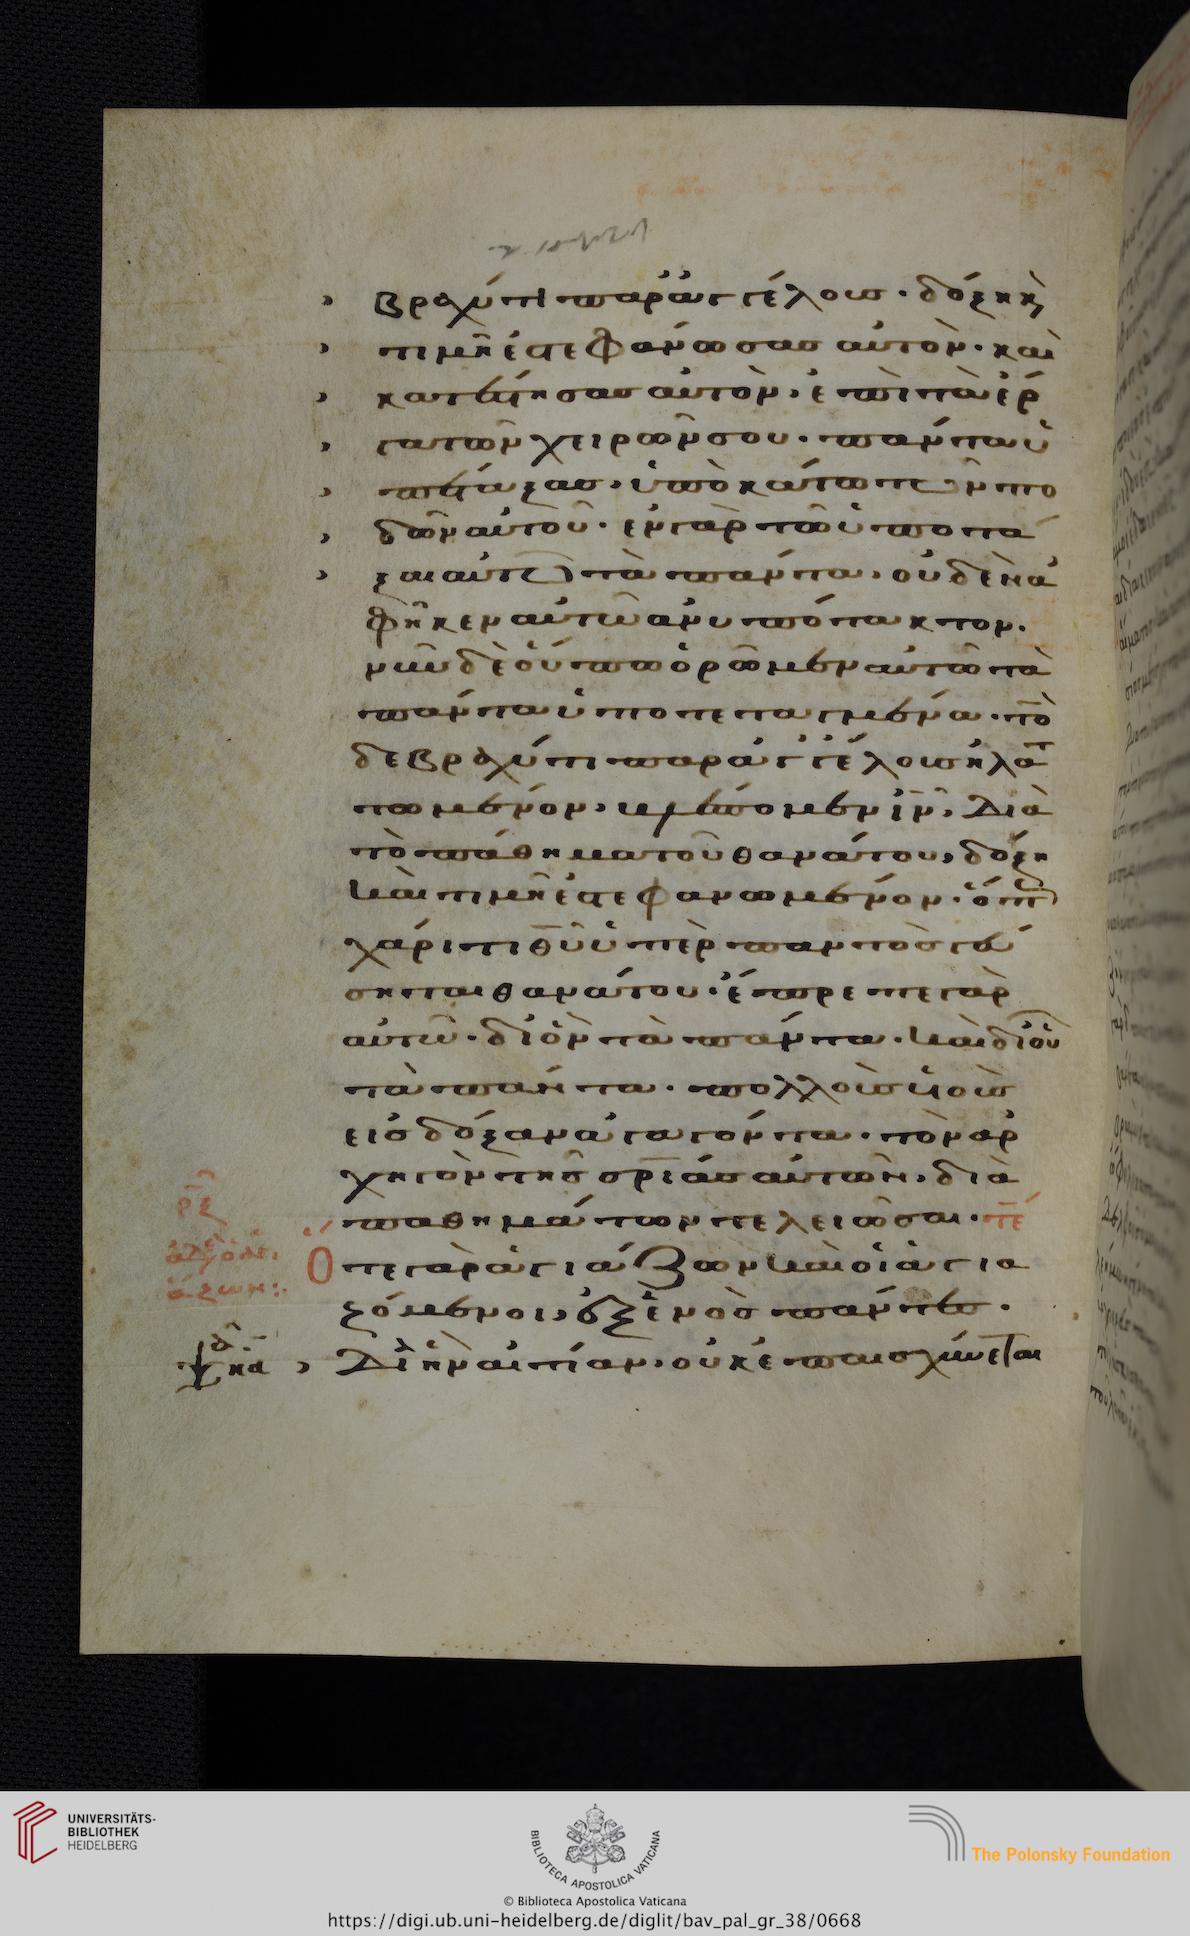 βραχύ τι παρ' ἀγγέλους· δόξη κ(αὶ)
τιμῆ ἐστεφάνωσας αὐτὸν· καὶ
κατέστησας αὐτὸν, ἐπὶ τὰ ἔρ
γα τῶν χειρῶν σου· πάντα ὑ
πέταξας, ὑποκάτω τῶν πο
δῶν αὐτοῦ· ἐν γὰρ τῶ ὑποτά
ξαι αὐτῶ τὰ πάντα, οὐδὲν ἀ
φῆκεν αὐτῶ ἀνυπότακτον.
νῦν δὲ οὔπω ὁρῶμεν αὐτῶ τὰ
πάντα ὑποτεταγμένα· τὸ
δε βραχύ τι παρ' ἀγγέλους ἠλατ
τωμένον, βλέπομεν ἰν, Διὰ
τὸ πάθημα τοῦ θανάτου, δόξη
καὶ τιμῆ ἐστεφανωμένον· ὅπως
χάριτι θυ ὑπὲρ παντὸς γεύ
σηται θανάτου· ἔπρεπε γὰρ
αὐτῶ· δι' ὃν τὰ πάντα· καὶ δι' οὗ
τὰ πάντα· πολλοὺς υἱοὺς
εἰς δόξαν ἀγαγόντα· τὸν ἀρ
χηγὸν τῆς σρίας αὐτῶν, διὰ
παθημάτων τελειῶσαι· τέ
Ὅ τε γὰρ ἁγιάζων καὶ οἱ ἁγια
ζόμενοι, ἐξ ἑνὸς πάντες·
Δι' ἣν αἰτίαν, οὐκ ἐπαισχύνεται
UNIVERSITÄTS-
BIBLIOTHEK
HEIDELBERG
BIBLIOTECA APOSTOLICA VATICANA
The Polonsky Foundation
© Biblioteca Apostolica Vaticana
https://digi.ub.uni-heidelberg.de/diglit/bav_pal_gr_38/0668